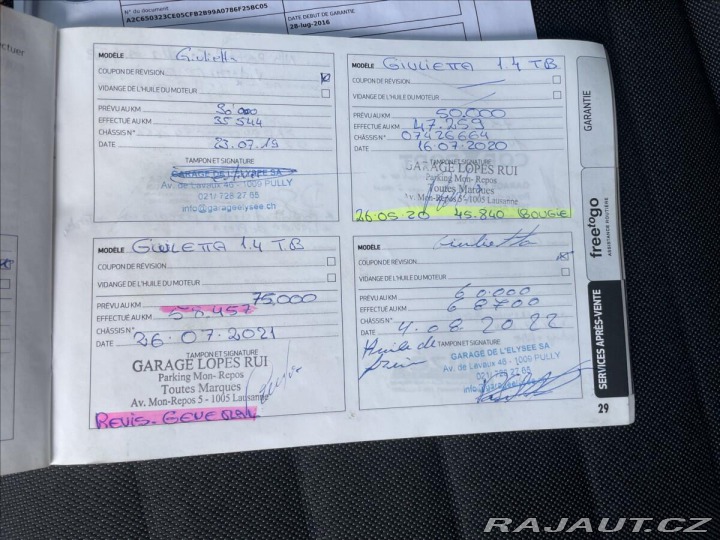 N° du document
A2C650323CE05CFB2B99A0786F25BC05
DATE DEBUT DE GARANTIE
28-lug-2016
MODÈLE Giulietta
COUPON DE RÉVISION
VIDANGE DE L'HUILE DU MOTEUR
PRÉVU AU KM 30'000
EFFECTUÉ AU KM 35544
CHÂSSIS N°
DATE 23.07.19
TAMPON ET SIGNATURE
GARAGE DE L'ELYSEE SA
Av. de Lavaux 46 - 1009 PULLY
021/ 728 27 85
info@garageelysee.ch
MODÈLE GIULIETTA 1.4 TB
COUPON DE RÉVISION
VIDANGE DE L'HUILE DU MOTEUR
PRÉVU AU KM 50.000
EFFECTUÉ AU KM 47.259
CHÂSSIS N° 07426664
DATE 16.07.2020
TAMPON ET SIGNATURE
GARAGE LOPES RUI
Parking Mon-Repos
Toutes Marques
Av. Mon-Repos 5 - 1005 Lausanne
26.05.20 45.840 BOUGIE
MODÈLE GIULIETTA 1.4 TB
COUPON DE RÉVISION
VIDANGE DE L'HUILE DU MOTEUR
PRÉVU AU KM 75,000
EFFECTUÉ AU KM
CHÂSSIS N°
DATE 26.07.2021
TAMPON ET SIGNATURE
GARAGE LOPES RUI
Parking Mon-Repos
Toutes Marques
Av. Mon-Repos 5 - 1005 Lausanne
REVIS. GENERALE
MODÈLE Giulietta
COUPON DE RÉVISION
VIDANGE DE L'HUILE DU MOTEUR
PRÉVU AU KM 60.000
EFFECTUÉ AU KM 68700
CHÂSSIS N°
DATE 4.08.2022
Huile de frein
TAMPON ET SIGNATURE
GARAGE DE L'ELYSEE SA
Av. de Lavaux 46 - 1009 PULLY
021/ 728 27 85
info@garageelysee.ch
GARANTIE
freetogo
ASSISTANCE ROUTIÈRE
SERVICES APRÈS-VENTE
29
RAJAUT.CZ